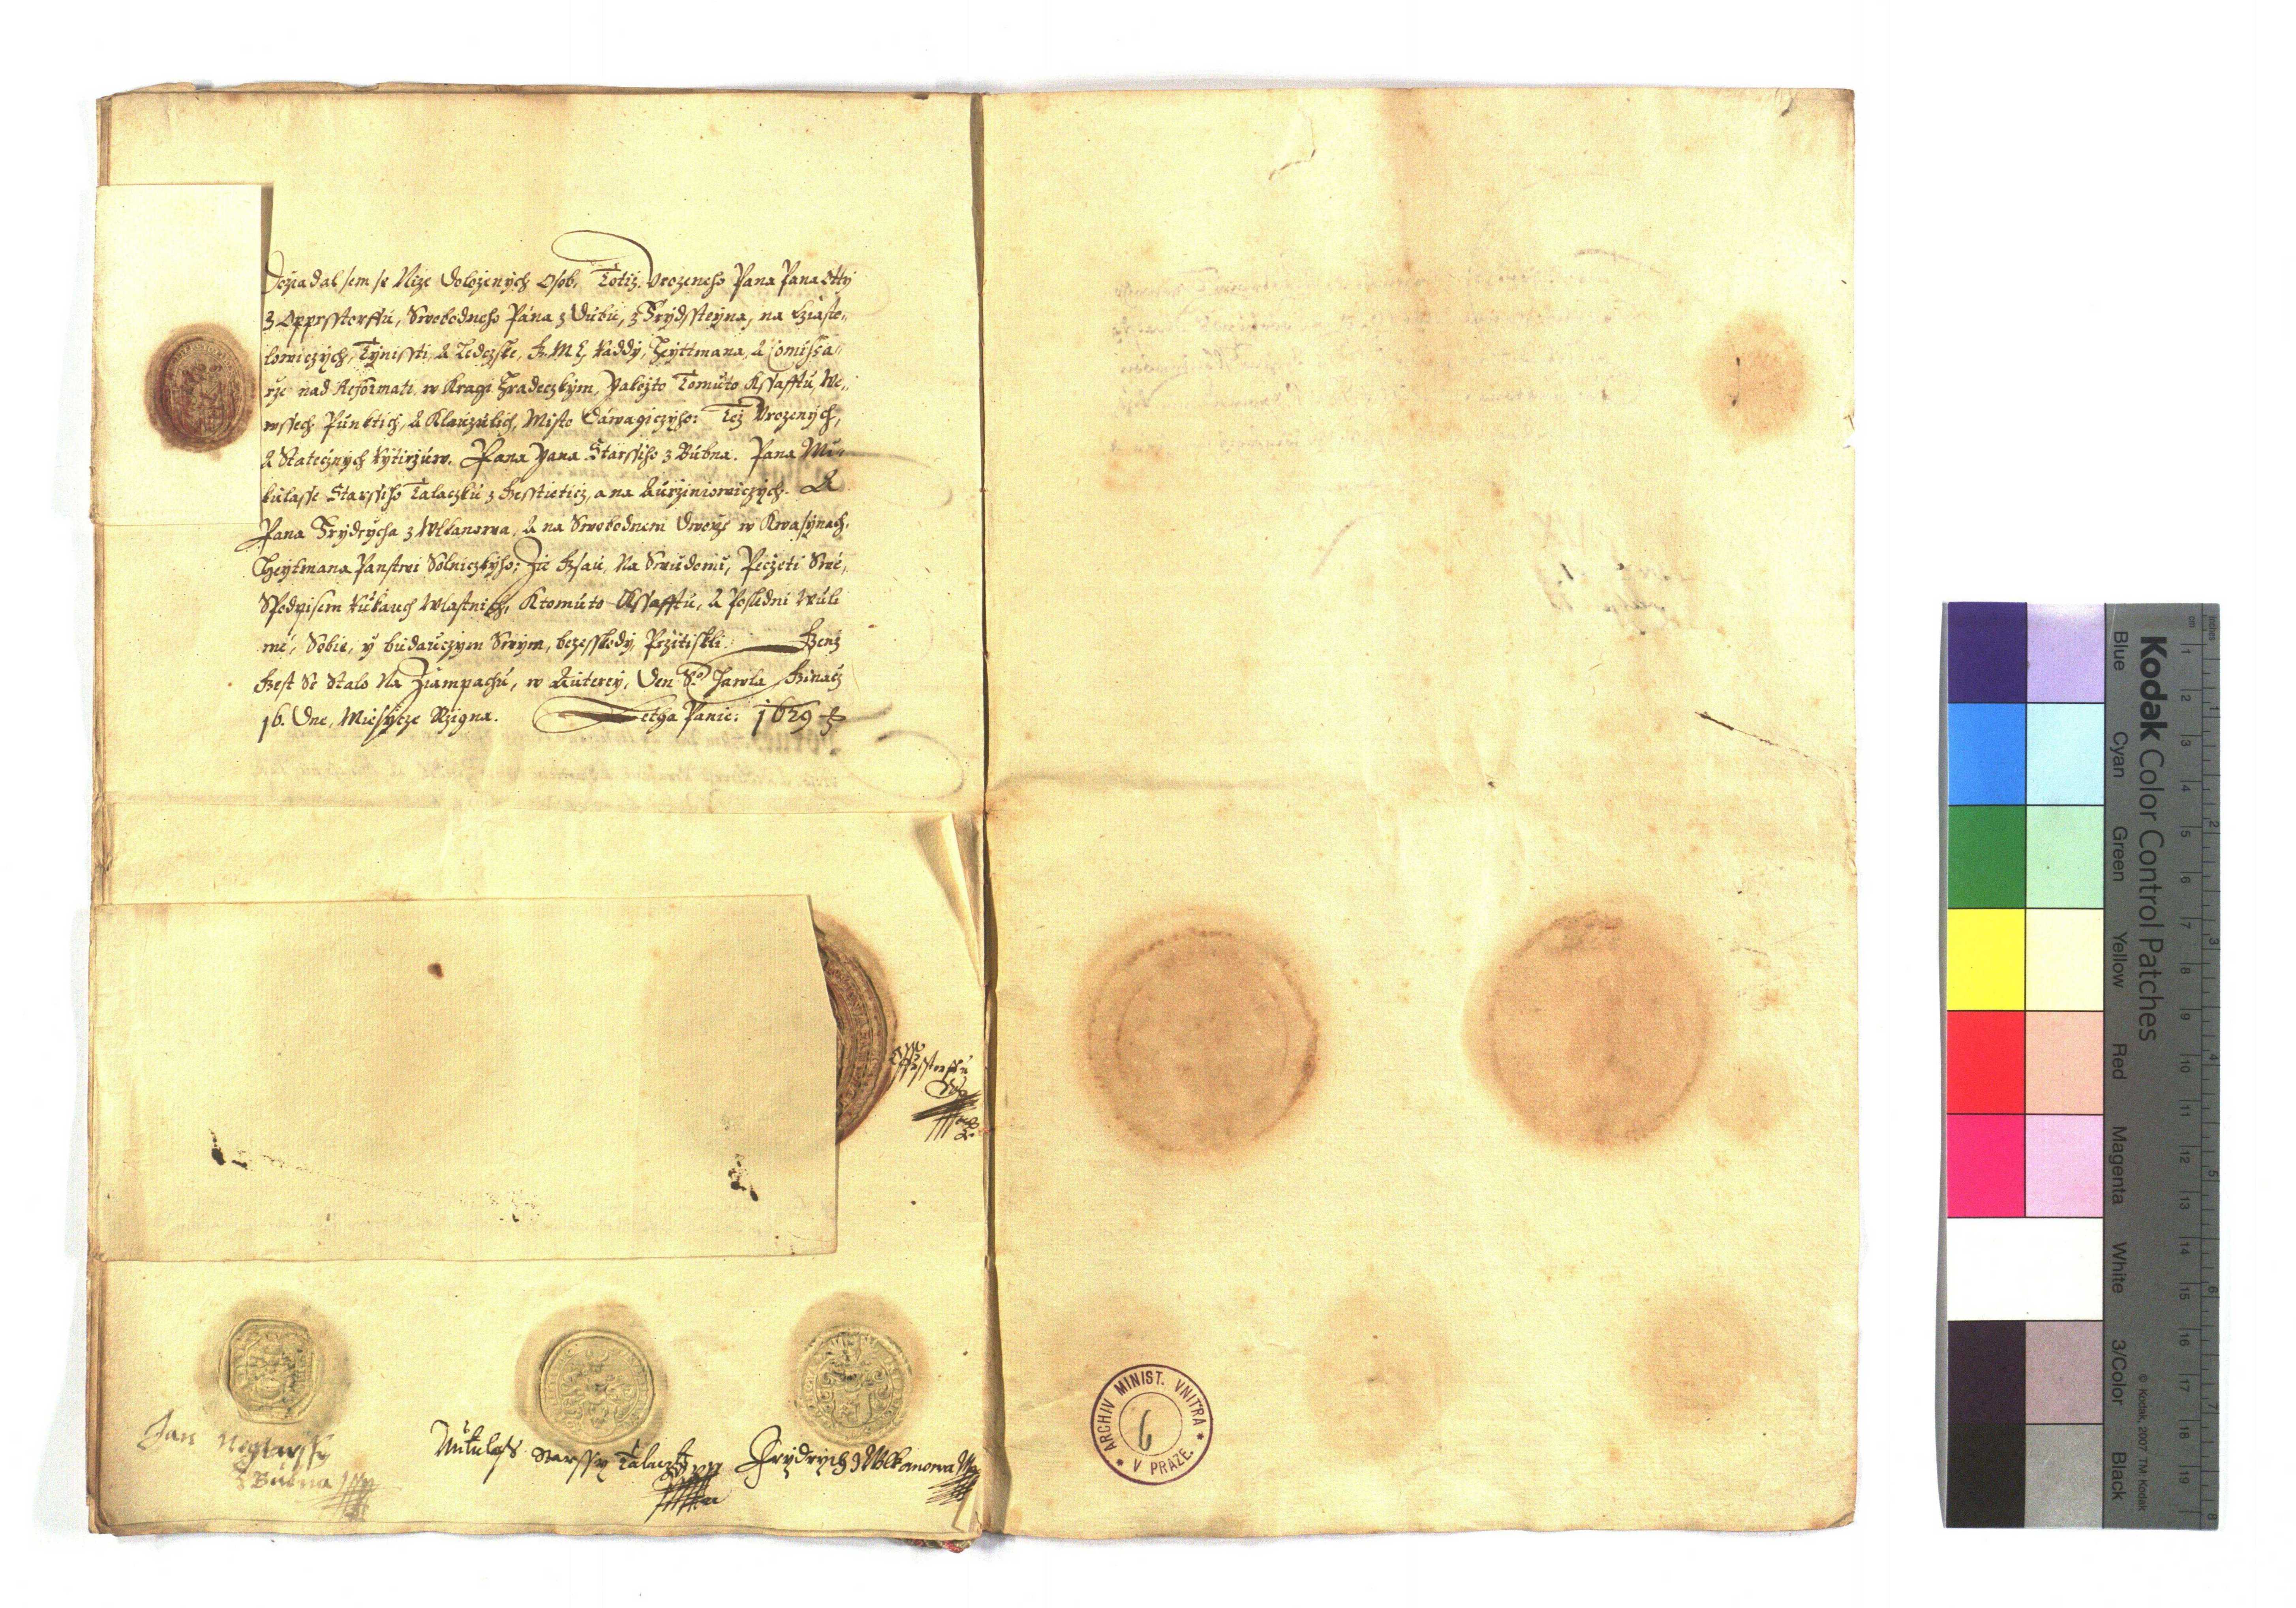 Dožiadal sem se Nize doloźených Osob, Totiź Vrozeneho Pana Pana Otty
z Opprsstorffu, Swobodneho Pána z Dubu, z Frydssteyna, na Cziasto-
lowiczých, Týnissti, a Ledczske, J. M. C. Raddy, Heyttmana, a Comissa-
rze nad Reformati, w Kragi Hradeczkým, Yakožto Tomuto Kssafftu, We-
wssech Punktich, a Klauzulich, Misto Dáwagiczyho: Teź Vrozených,
a Statećných Rytirzúw, Pana Yana Starssiho z Bubna. Pana Mi-
kulasse Starssiho Talaczku z Jesstieticz, a na Kurziniowiczých. A
Pana Frydrycha z Wlkanowa, a na Swobodnem dworze w Kwasynach,
Heytmana Panstwi Solniczkyho: Źe Jsau, Na Swiedomi, Peczeti Swé,
Spodpisem Rukauch Wlastnich, Ktomuto Kssafftu, a Posledni Wuli
mé, Sobie, y buдauczym Swym, bezesskody, Przitiskli. Jenź
Jest Se Stalo Na Źiampachu, w Auterey, Den S° Hawla Jináć
16. Dne, Miesýcze Rzigna. Letha Panie: 1629
Jan Neystarssy
z Bubna
Mikulass Starssy Talaczko
Frydrych z Wlkanowa
ARCHIV MINIST. VNITRA
V PRAZE
6
Kodak Color Control Patches
Blue Cyan Green Yellow Red Magenta White 3/Color Black
© Kodak, 2007 TM: Kodak
inches 1 2 3 4 5 6 7 8
cm 1 2 3 4 5 6 7 8 9 10 11 12 13 14 15 16 17 18 19